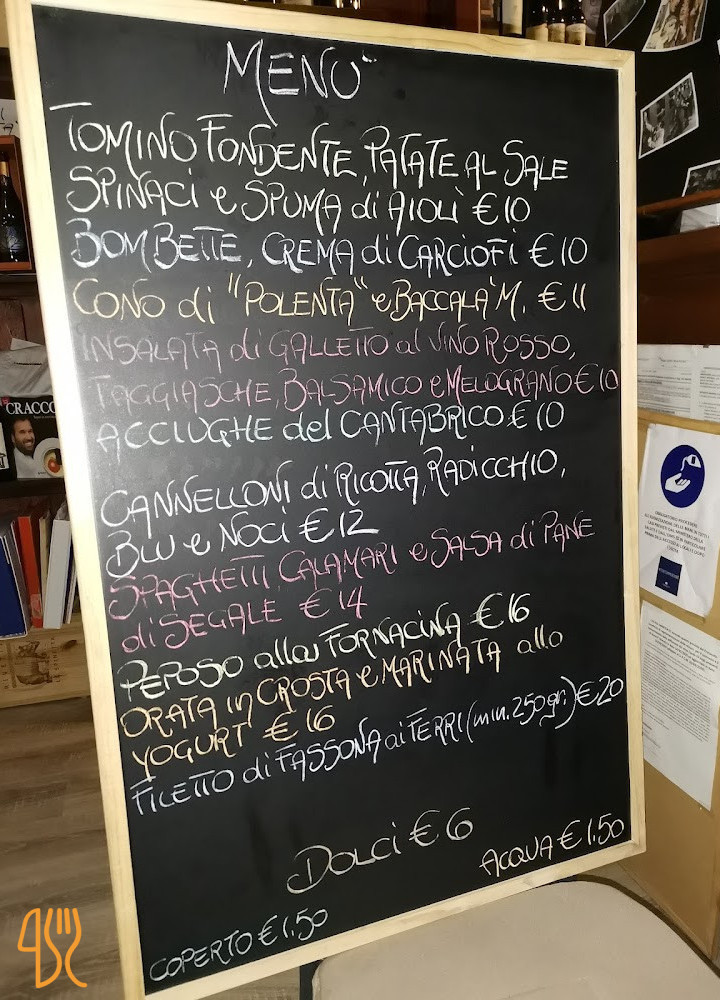 MENÙ
TOMINO FONDENTE, PATATE AL SALE
SPINACI e SPUMA di AIOLÌ €10
BOMBETTE, CREMA di CARCIOFI €10
CONO di "POLENTA" e BACCALA' M. €11
INSALATA di GALLETTO al VINO ROSSO,
TAGGIASCHE, BALSAMICO e MELOGRANO €10
ACCIUGHE del CANTABRICO € 10
CANNELLONI di RICOTTA, RADICCHIO,
BLU e NOCI €12
SPAGHETTI, CALAMARI e SALSA di PANE
di SEGALE €14
PEPOSO alla FORNACINA €16
ORATA in CROSTA e MARINATA allo
YOGURT €16
FILETTO di FASSONA ai FERRI (min. 250gr.) €20
DOLCI € 6
ACQUA € 1.50
COPERTO €1.50
CRACCO